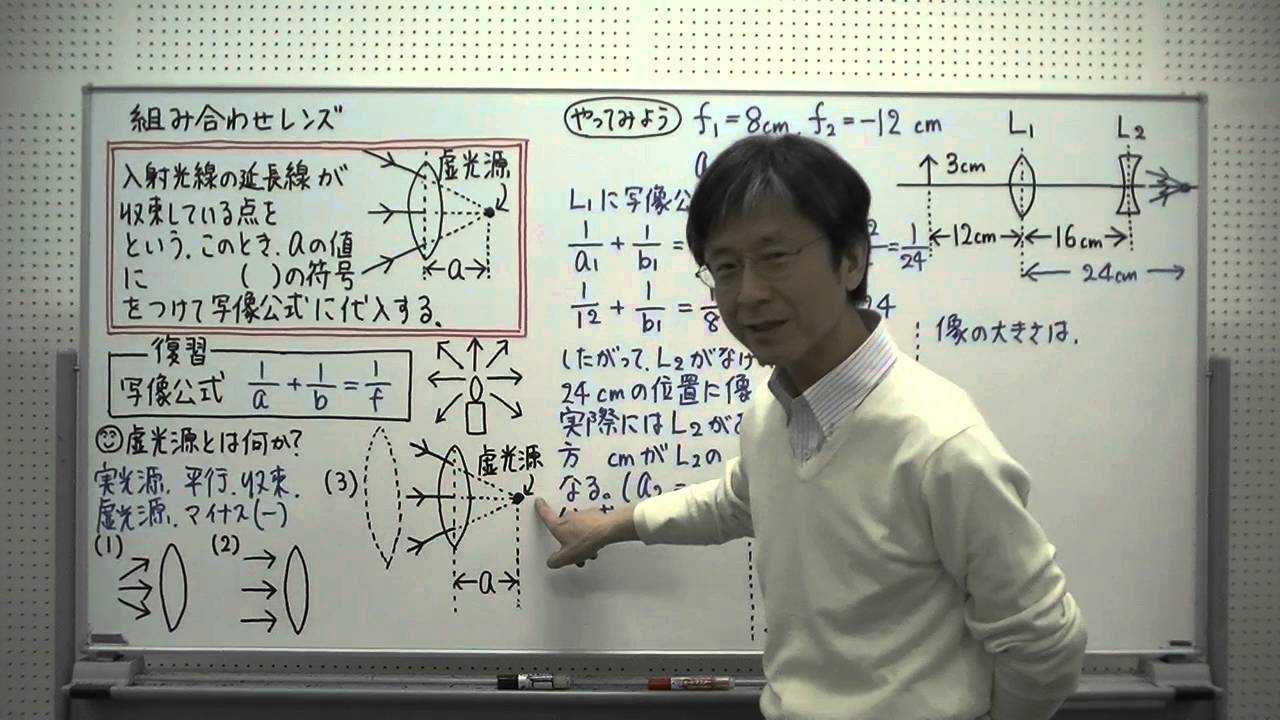 組み合わせレンズ
入射光線の延長線が
収束している点を
という.このとき,aの値
に ( )の符号
をつけて写像公式に代入する.
虚光源
a
復習
写像公式 1/a + 1/b = 1/f
虚光源とは何か?
実光源. 平行. 収束.
虚光源. マイナス(−)
(1) (2) (3)
虚光源
a
やってみよう f₁=8cm, f₂=−12 cm
L₁に写像公
1/a₁ + 1/b₁ =
= 1/24
1/12 + 1/b₁ = 1/8
24
したがって, L₂がなけ
24cmの位置に像
実際にはL₂があ
方 cmがL₂の
なる。(a₂=
L₁ L₂
3cm
12cm 16cm
24cm
像の大きさは,